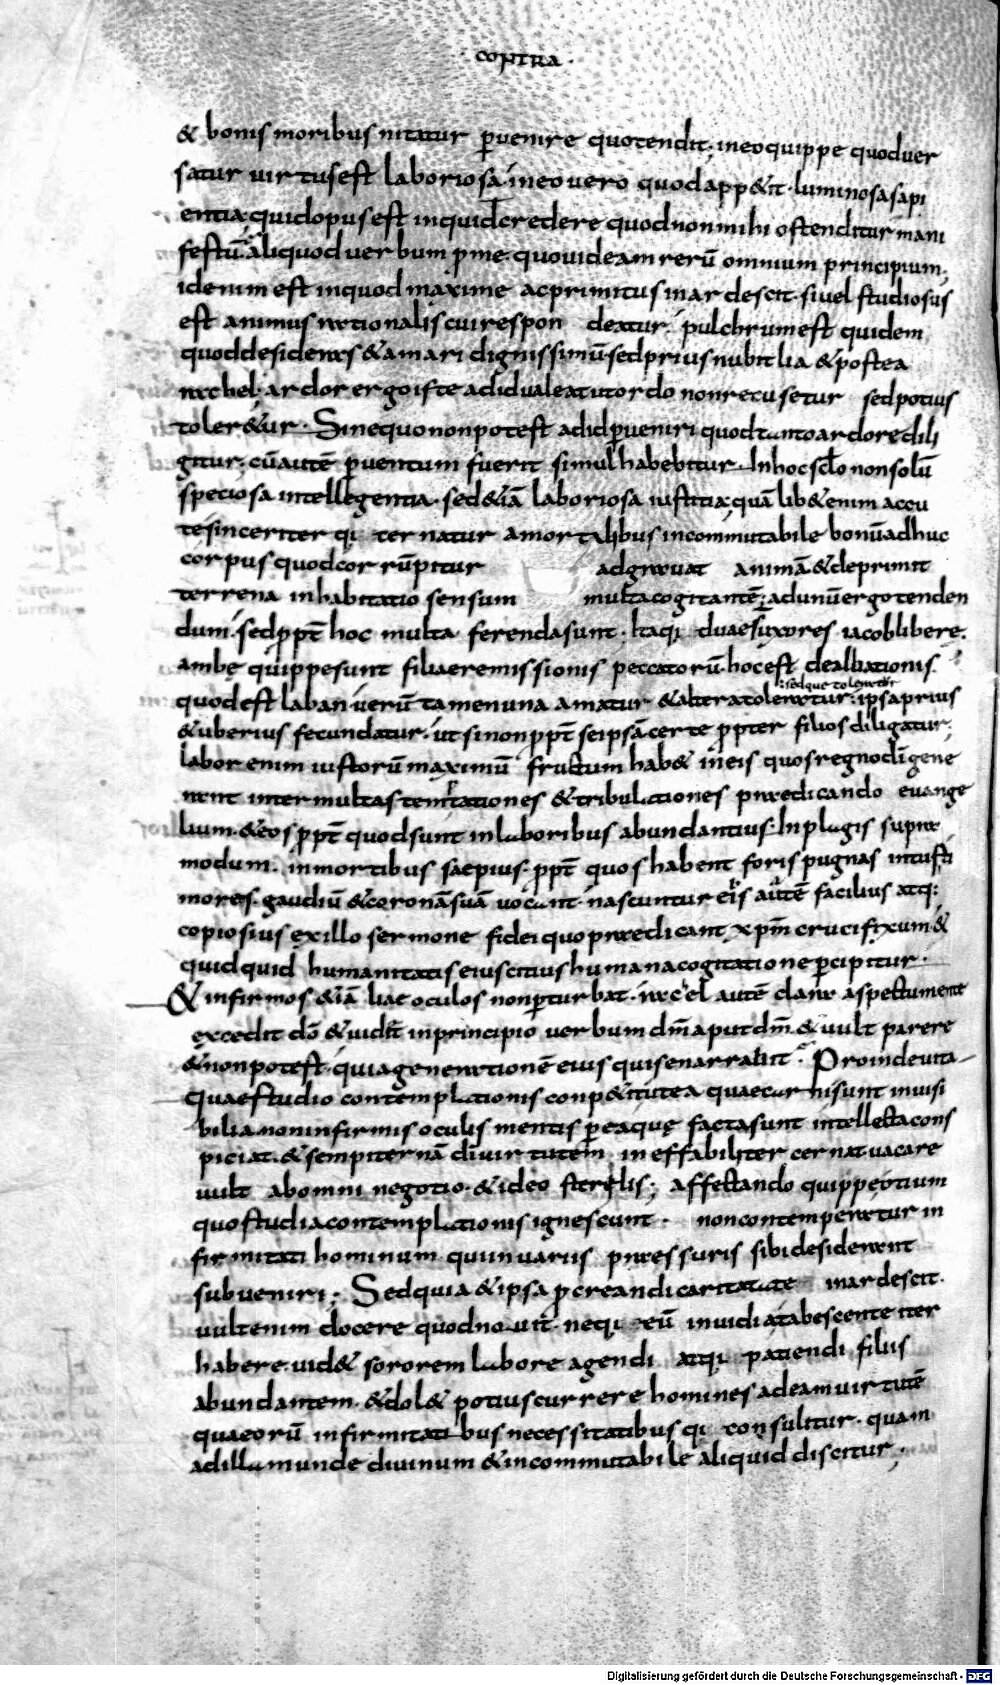 · CONTRA ·
& bonis moribus nitatur ꝑvenire quotendit; ineoquippe quoduer
satur uirtusest laboriosa. ineovero quodapp&it. luminosasapi
entia. quidopusest inquid credere quodnonmihi ostenditur mani
festū. aliquod verbum pme. quouideam rerū omnium principium.
idenim est inquod maxime acprimitus inardescit. siuel studiosus
est animus rationalis cui respon deatur. pulchrum est quidem
quoddesideras & amari dignissimū sed prius nubit lia & postea
rachel. ardor ergo iste adid ualeat utordo nonrecusetur sedpotius
toler&ur. Sinequo nonpotest adid ꝑveniri quod tanto ardore dili
gitur. cū autē ꝑventum fuerit simul habebitur. Inhoc sclo nonsolū
speciosa intellegentia. sed &iā laboriosa iustitia. quā lib& enim accu
te sinceriter qi ternatur amortalibus incommutabile bonū adhuc
corpus quodcorrūpitur adgravat animā & deprimit
terrena inhabitatio sensum multa cogitantē; adunū ergo tenden
dum. sed ꝓpt̄ hoc multa ferendasunt. Itaqi duae s uxores iacob liberę.
ambę quippesunt filiae remissionis peccatorū. hoc est dealbationis.
: sedque toleratur
quod est laban verū tamen una amatur & altera toleratur. ipsaprius
& uberius fecundatur. ut si non ꝓpt̄ seipsā certe ꝓpter filios diligatur.
labor enim iustorū maximū fructum hab& ineis quosregno dī gene
rant inter multas temtationes & tribulationes praedicando evange
lium. & eos ꝓpt̄ quodsunt inlaboribus abundantius. Inplagis supra
modum. inmortibus saepius. ꝓpt̄ quos habent foris pugnas intus ti
mores. gaudiū & coronā suā vocant. nascuntur eis autē facilius atqi:
copiosius exillo sermone fidei quopraedicant xpm̄ crucifixum &
quidquid humanitatis eius citius humanacogitatione ꝑcipitur.
& infirmos &iā liae oculos non ꝑturbat. rachel autē clara aspectu mente
excedit dō & uid& inprincipio verbum dm̄ aput dm̄. & uult parere
& nonpotest. quia generationē eius quis enarrabit. Proinde uita
quae studio contemplationis conp&it ut ea quae carni sunt invisi
bilia noninfirmis oculis mentis ꝑ eaquę factasunt intellecta cons
piciat. & sempiternā dī virtutem ineffabiliter cernat vacare
uult abomni negotio. & ideo sterelis; affectando quippe otium
quo studia contemplationis ignescunt. noncontemperatur in
firmitati hominum quiin variis praessuris sibi desiderant
subveniri; Sed quia & ipsa ꝓcreandi caritate inardescit.
uult enim docere quod novit. neqi cū invidia tabescente iter
habere. uid& sororem labore agendi atqi patiendi filiis
abundantem. & dol& potius currere homines ad eam uirtutē
quaeorū infirmitatibus necessitatibus qi consulitur. quam
adillam unde divinum & incommutabile aliquid discitur.
Digitalisierung gefördert durch die Deutsche Forschungsgemeinschaft - DFG